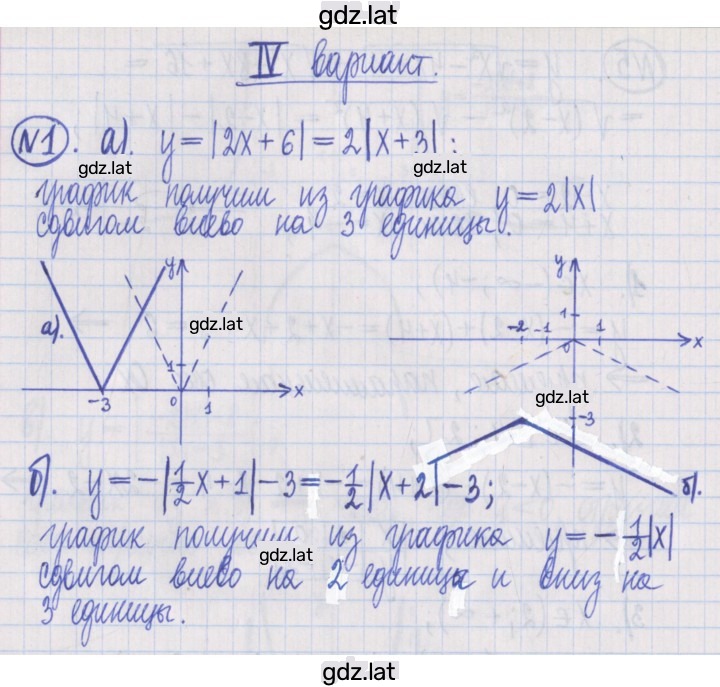 gdz.lat
IV вариант.
№1. а). y = |2x + 6| = 2|x + 3| :
gdz.lat gdz.lat
график получим из графика y = 2|x|
сдвигом влево на 3 единицы.
y y
а). gdz.lat 1 -2 -1 0 1 x
1 gdz.lat
-3 0 1 x -3
б).
б). y = -|1/2 x + 1| - 3 = -1/2 |x + 2| - 3;
график получим из графика y = -1/2|x|
gdz.lat
сдвигом влево на 2 единицы и вниз на
3 единицы.
gdz.lat